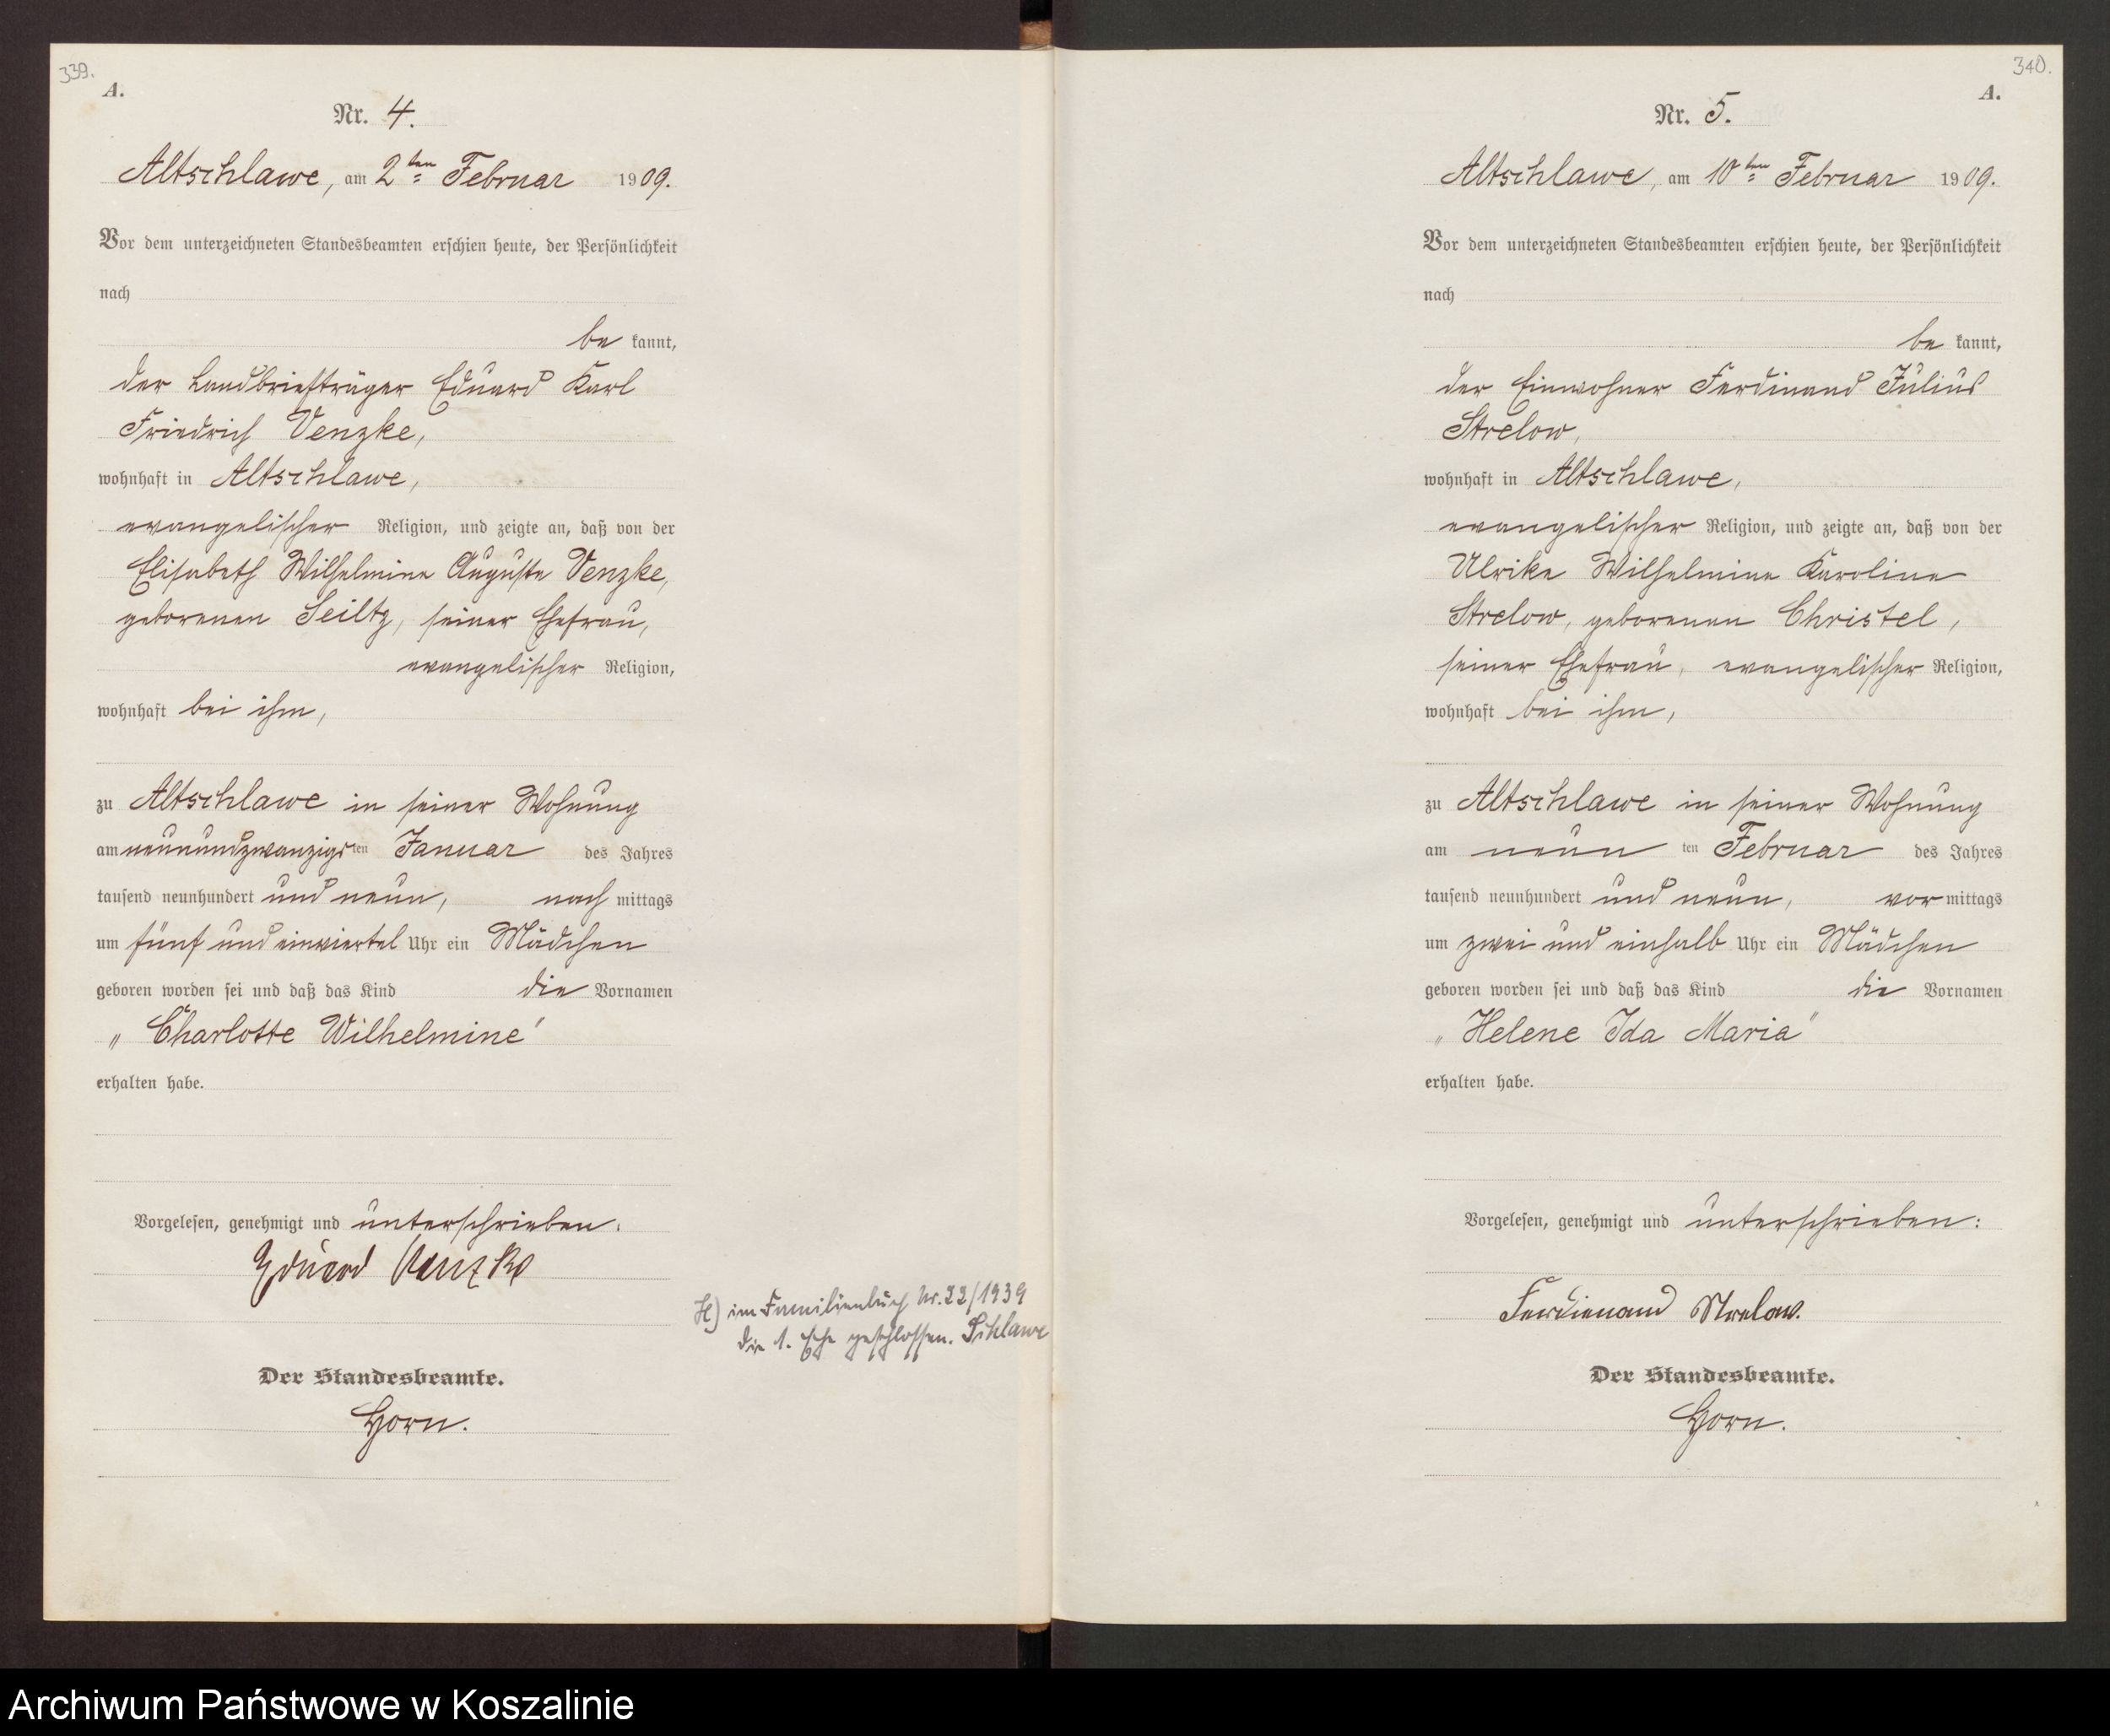 339.
A.
Nr. 4.
Altschlawe, am 2ten Februar 1909.
Vor dem unterzeichneten Standesbeamten erschien heute, der Persönlichkeit
nach
be kannt,
der Landbriefträger Eduard Karl
Friedrich Venzke,
wohnhaft in Altschlawe,
evangelischer Religion, und zeigte an, daß von der
Elisabeth Wilhelmine Auguste Venzke,
geborenen Seiltz, seiner Ehefrau,
evangelischer Religion,
wohnhaft bei ihm,
zu Altschlawe in seiner Wohnung
am neunundzwanzigsten Januar des Jahres
tausend neunhundert und neun, nach mittags
um fünf und einviertel Uhr ein Mädchen
geboren worden sei und daß das Kind die Vornamen
„Charlotte Wilhelmine"
erhalten habe.
Vorgelesen, genehmigt und unterschrieben.
Eduard Venzke
H) im Familienbuch Nr. 22/1939
die 1. Ehe geschlossen. Schlawe
Der Standesbeamte.
Horn.
340.
A.
Nr. 5.
Altschlawe, am 10ten Februar 1909.
Vor dem unterzeichneten Standesbeamten erschien heute, der Persönlichkeit
nach
be kannt,
der Einwohner Ferdinand Julius
Strelow,
wohnhaft in Altschlawe,
evangelischer Religion, und zeigte an, daß von der
Ulrike Wilhelmine Karoline
Strelow, geborenen Christel,
seiner Ehefrau, evangelischer Religion,
wohnhaft bei ihm,
zu Altschlawe in seiner Wohnung
am neun ten Februar des Jahres
tausend neunhundert und neun, vor mittags
um zwei und einhalb Uhr ein Mädchen
geboren worden sei und daß das Kind die Vornamen
„Helene Ida Maria"
erhalten habe.
Vorgelesen, genehmigt und unterschrieben:
Ferdienand Strelow.
Der Standesbeamte.
Horn.
Archiwum Państwowe w Koszalinie